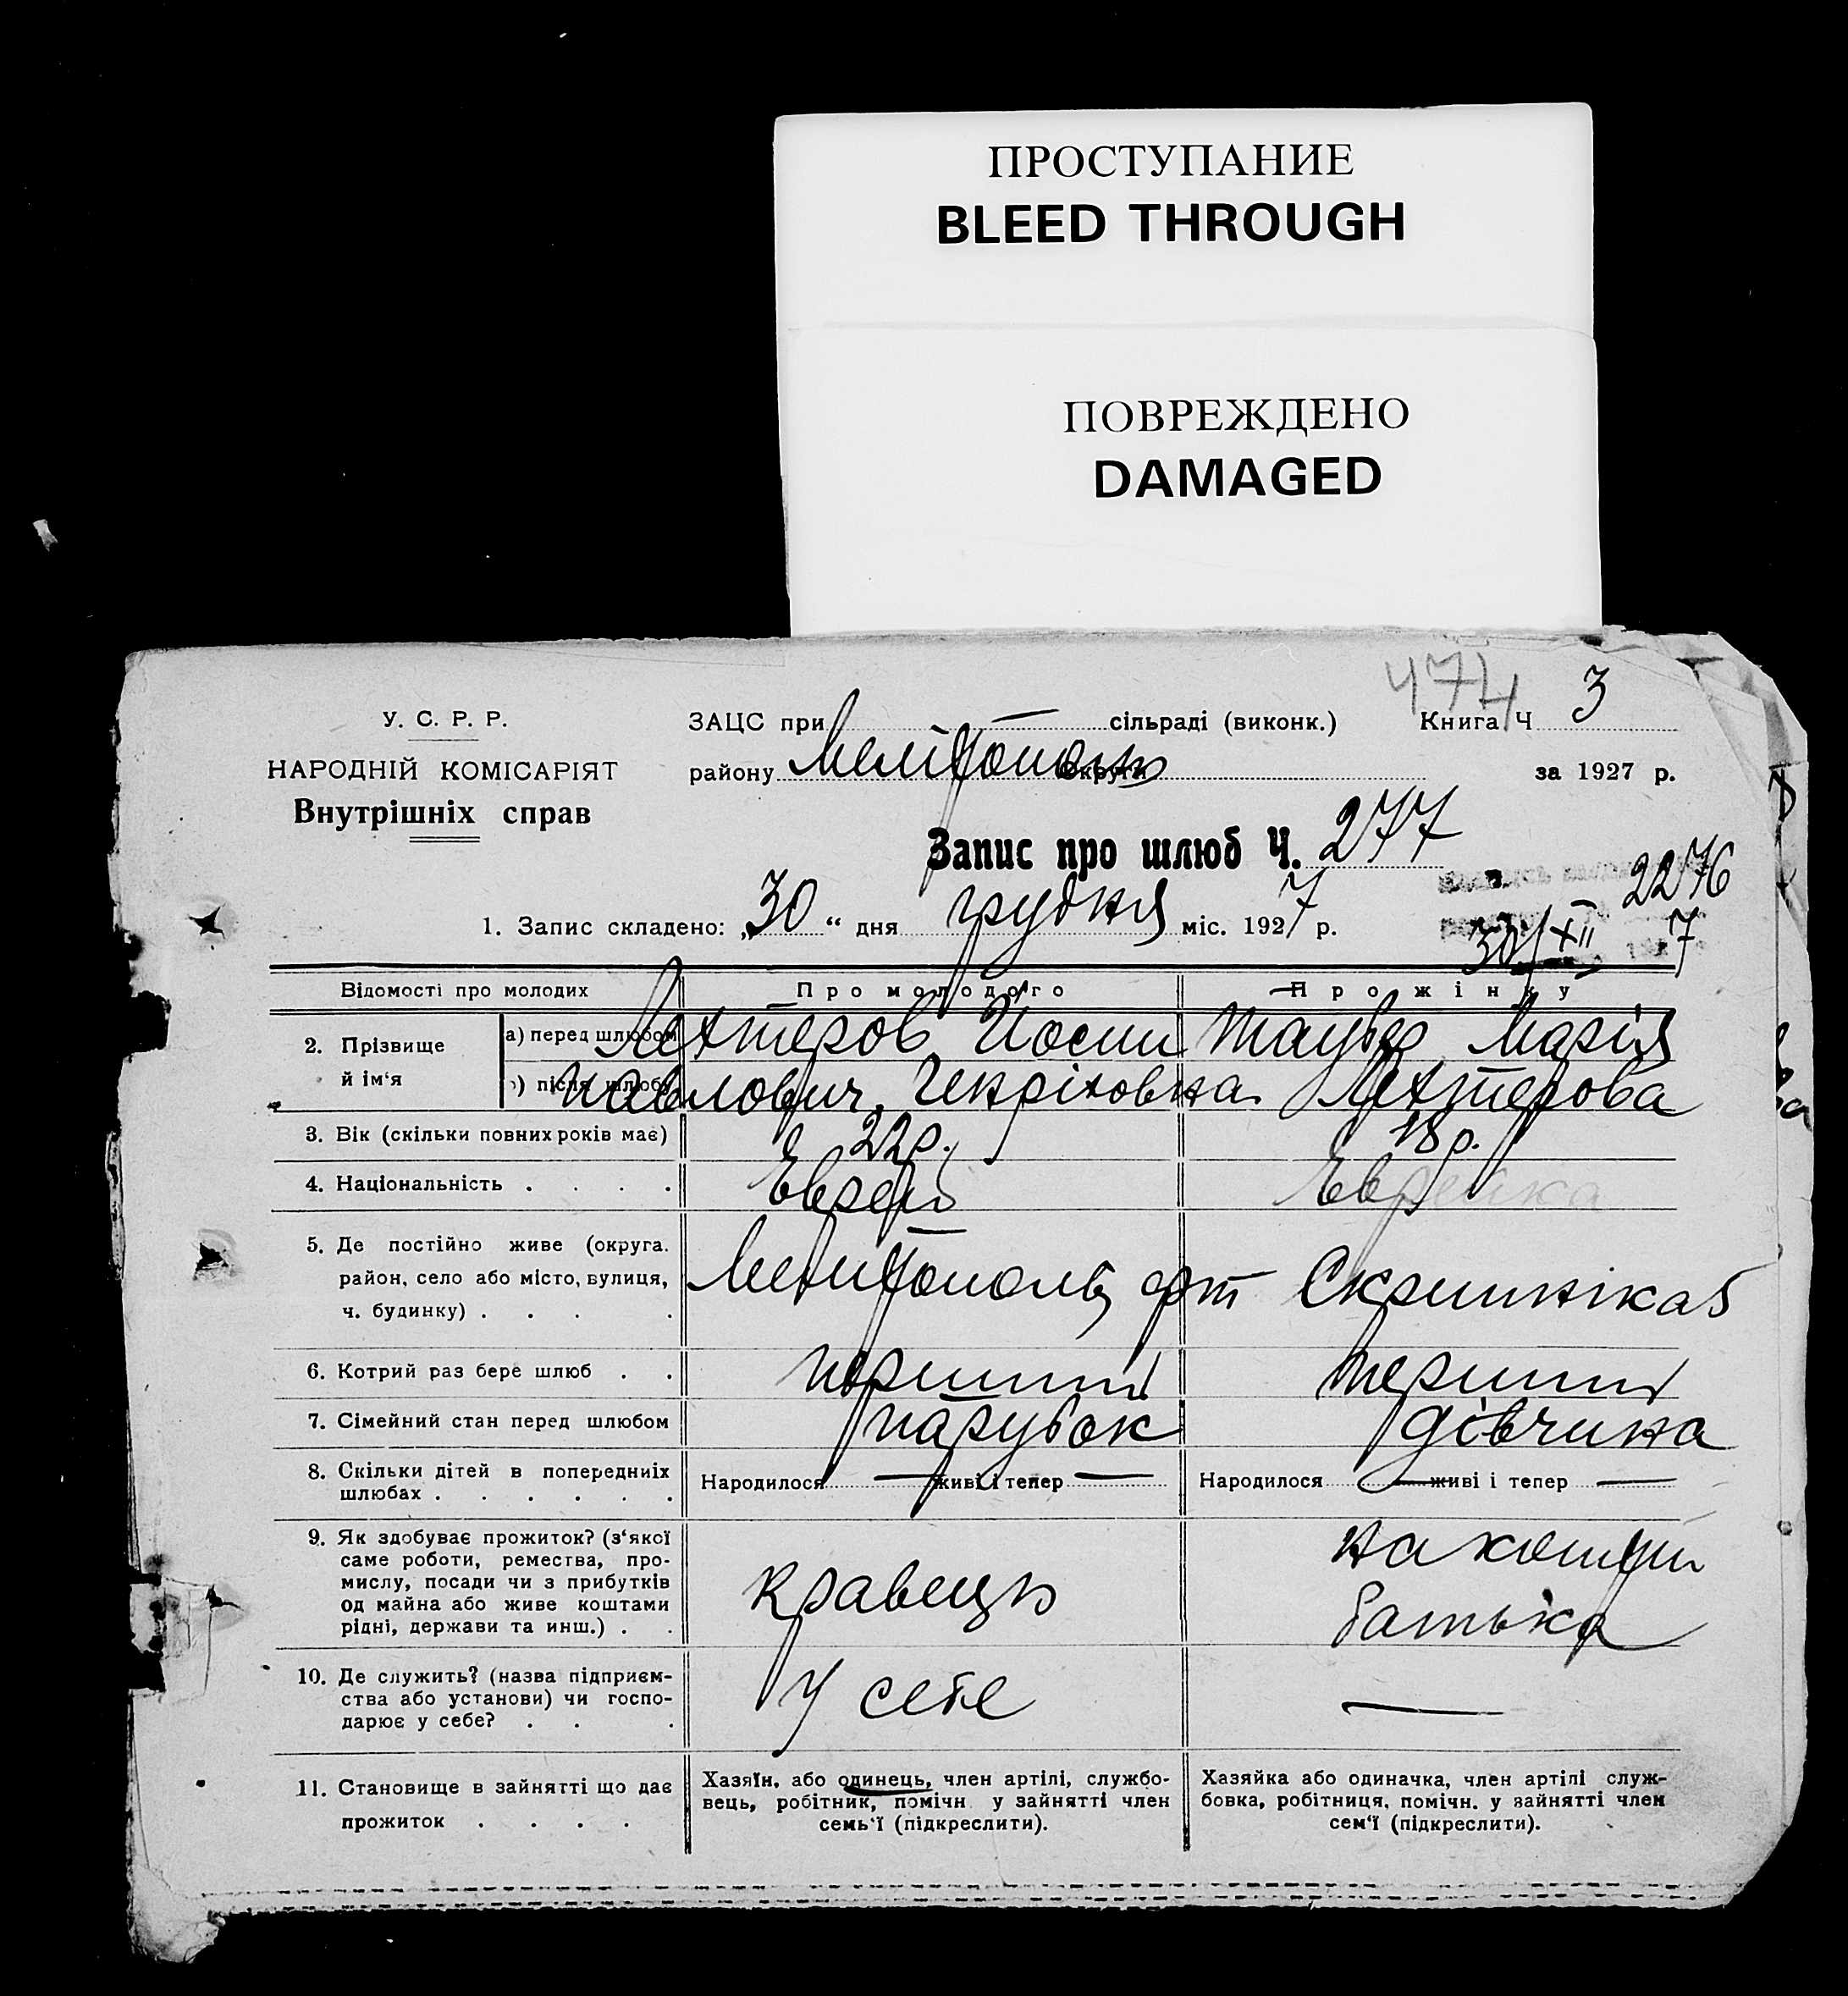 ПРОСТУПАНИЕ
BLEED THROUGH
ПОВРЕЖДЕНО
DAMAGED
474
У. С. Р. Р.
НАРОДНІЙ КОМІСАРІЯТ
Внутрішніх справ
ЗАЦС при — сільраді (виконк.) Книга Ч 3
району Мелітополь округи за 1927 р.
Запис про шлюб Ч. 277
2276
1. Запис складено: „30“ дня грудня міс. 1927 р.
30/XII 7
Відомості про молодих Про молодого Про жінку
2. Прізвище й ім‘я
а) перед шлюбом Лехтеров Йосип Таубер Марія
б) після шлюбу Павлович, Генріховна Лехтерова
3. Вік (скільки повних років має) 22 р. 18 р.
4. Національність . . . . Єврей Єврейка
5. Де постійно живе (округа.
район, село або місто, вулиця,
ч. будинку) . . . . Мелитополь Скрипніка 5
6. Котрий раз бере шлюб . . перший перший
7. Сімейний стан перед шлюбом парубок дівчина
8. Скільки дітей в попередниіх
шлюбах . . . . . . Народилося — живі і тепер — Народилося — живі і тепер —
9. Як здобуває прожиток? (з‘якої
саме роботи, ремества, про-
мислу, посади чи з прибутків
од майна або живе коштами
рідні, держави та инш.) . . кравець на кошти
батька
10. Де служить? (назва підприєм-
ства або установи) чи госпо-
дарює у себе? . . . У себе —
11. Становище в зайнятті що дає
прожиток . . . .
Хазяїн, або одинець, член артілі, службо-
вець, робітник, помічн. у зайнятті член
семь‘ї (підкреслити).
Хазяйка або одиначка, член артілі служ-
бовка, робітниця, помічн. у зайнятті член
сем‘ї (підкреслити).